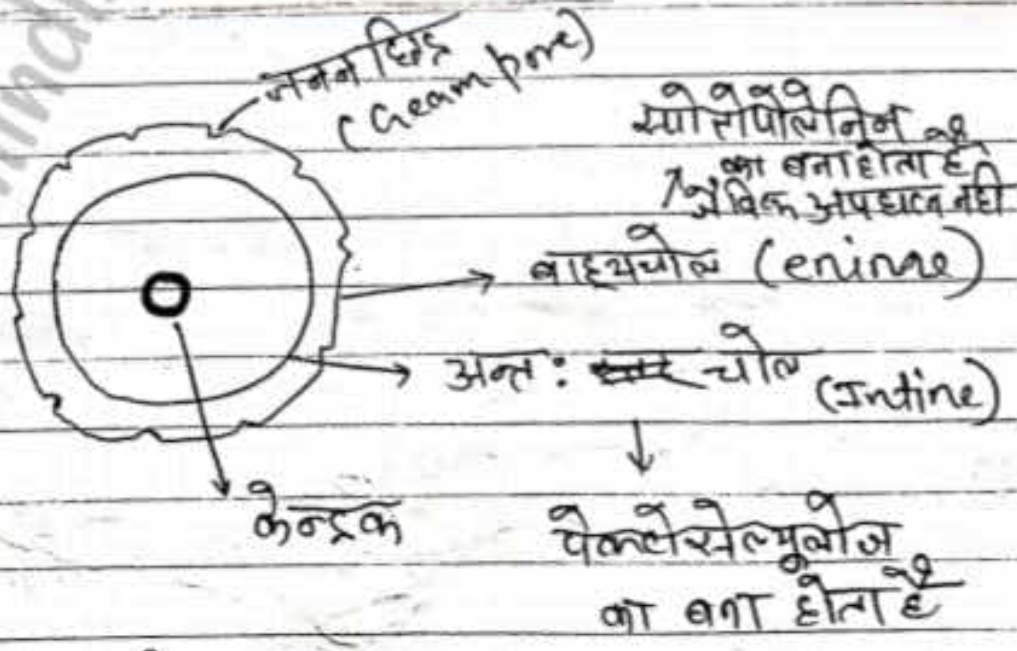 जनन छिद्र
(Geam pore)
स्पोरोपोलेनिन
का बना होता है
जैविक अपघटन नही
बाह्यचोल (eninne)
अन्त: चोल (Intine)
केन्द्रक
पेक्टोसेल्युलोज
का बना होता है